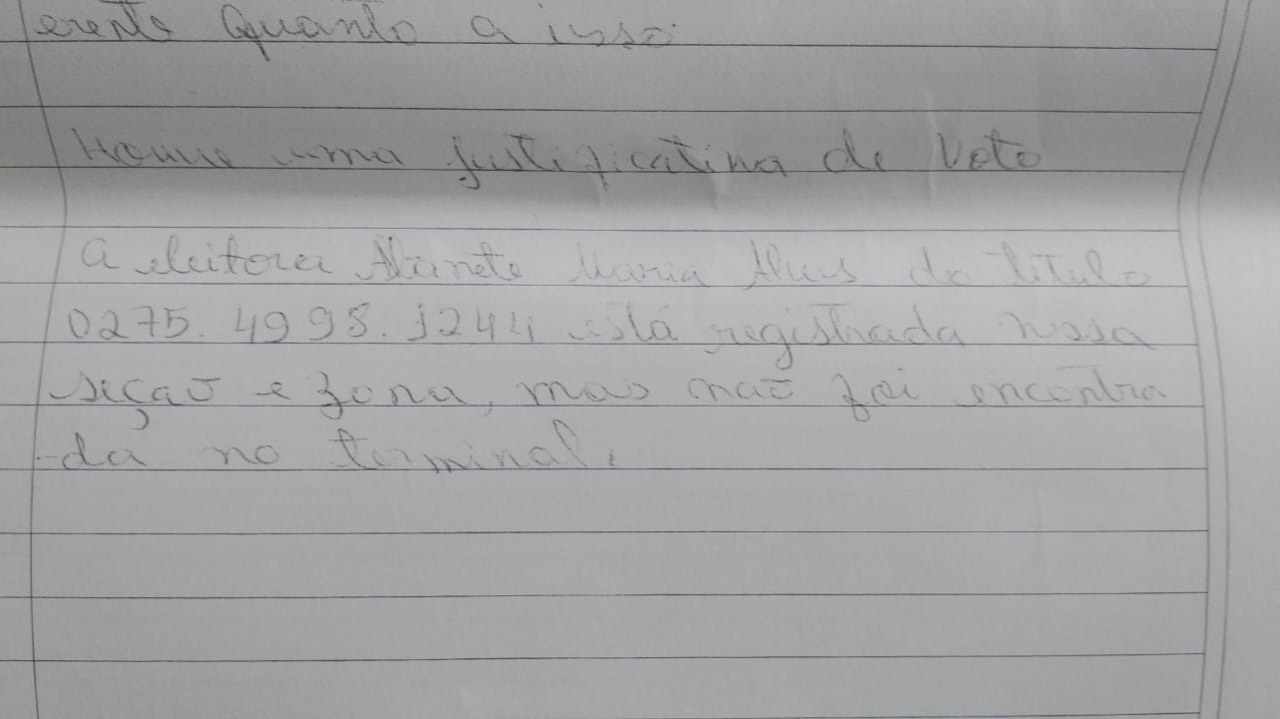 erente quanto a isso.
Houve uma justificativa de voto
A eleitora Maria Alves do titulo
0275.4998.1244 está registrada nessa
seção e zona, mas não foi encontra
-da no terminal.